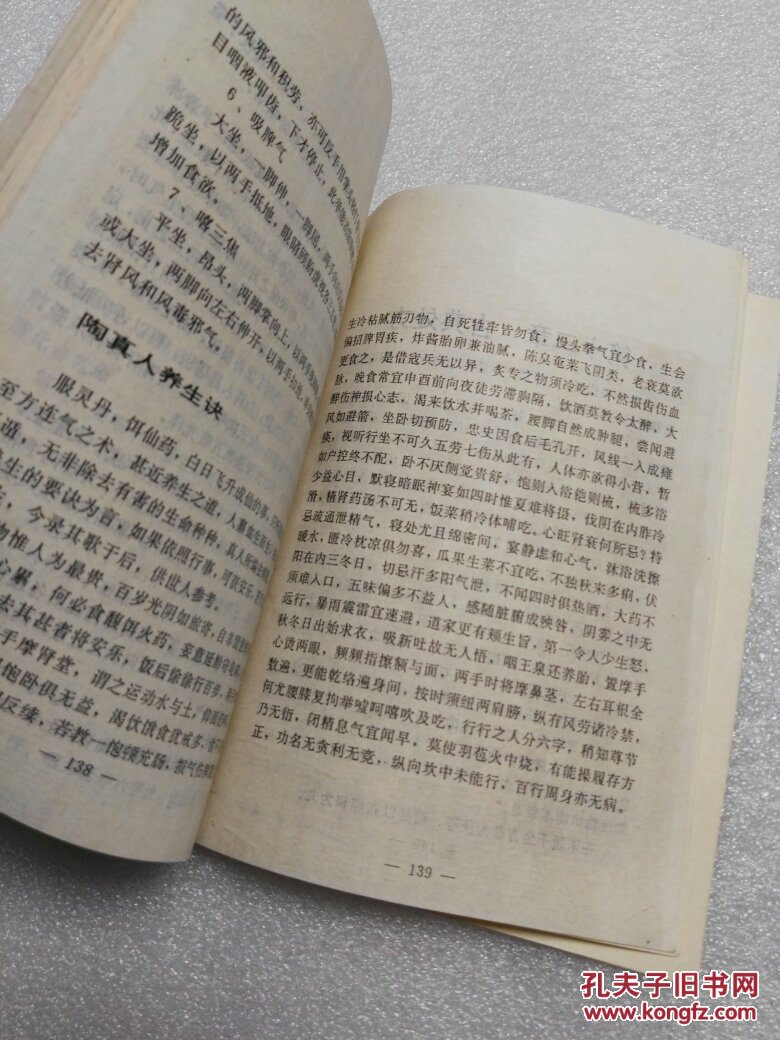 的风邪和积劳，亦可反手用拳
目咽液叩齿，下才停止，此举能
6、吸脾气
大坐，一脚伸，一脚屈，两手向
跪坐，以两手抵地，眼睛顾盼
增加食欲。
7、嘻三焦
平坐，昂头，两脚掌向上，以两手
或大坐，两脚向左右伸开，以两手扣地，
去肾风和风毒邪气。
陶真人养生诀
服灵丹，饵仙药，白日飞升成仙的事，
至方连气之术，甚近养生之道，人禀血
遁，无非除去有害的生命种种，真人所
生的要诀为言，如果依照行事，可获安乐，
，今录其歌于后，供世人参考。
物惟人为最贵，百岁光阴如旅济，自非
心累，何必食馥饵火药，妄意延龄守
去其甚者将安乐，饭后徐徐行百步，
手摩肾堂，谓之运动水与土，仰面
饱卧俱无益，渴饮饿食犹戒多，
反续，若教一饱顿充肠，损气伤
— 138 —
生冷粘腻筋刃物，自死牲牢皆勿食，慢头拳气宜少食，生会
偏招脾胃疾，炸酱胎卵兼油腻，陈臭奄菜飞阴类，老衰莫欲
更食之，是借寇兵无以异，炙专之物须冷吃，不然损齿伤血
脉，晚食常宜申酉前向夜徒劳滞胸隔，饮酒莫教令太醉，大
醉伤神损心志，渴来饮水并喝茶，腰脚自然成肿腿，尝闻避
风如避箭，坐卧切预防，忠史因食后毛孔开，风线一入成瘫
疾，视听行坐不可久五劳七伤从此有，人体亦欲得小营，暂
如户控终不配，卧不厌侧觉贵舒，饱则入浴铠则梳，梳多浴
少益心目，默寝暗眠神宴如四时惟夏难将摄，伐阴在内胙冷
滑，精肾药汤不可无，饭菜稍冷体哺吃。心旺肾衰何所忌？特
忌疏通泄精气，寝处尤且绵密间，宴静虑和心气，沐浴洗擦
暖水，匬冷枕凉俱勿喜，瓜果生菜不宜吃，不独秋来多痢，伏
阳在内三冬日，切忌汗多阳气泄，不闻四时俱热酒，大药不
须难入口，五味偏多不益人，感随脏腑成殃咎，阴雾之中无
远行，暴雨震雷宜速避，道家更有颓生旨，第一令人少生怒，
秋冬日出始求衣，吸新吐故无人悟，咽王泉还养胎，置摩手
心烫两眼，频频指擦额与面，两手时将摩鼻茎，左右耳根全
数遍，更能乾络遍身间，按时须纽两肩膀，纵有风劳诸冷禁，
何尤腰膝复拘挛嘘呵嘻吹及吃，行行之人分六字，稍知尊节
乃无衍，闭精息气宜闻早，莫使羽苞火中烧，有能操履存方
正，功名无贪利无竞，纵向坎中未能行，百行周身亦无病。
— 139 —
孔夫子旧书网
kongfz.com